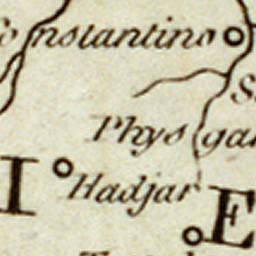 onstantino
S
Phys gar
I
Hadjar
E